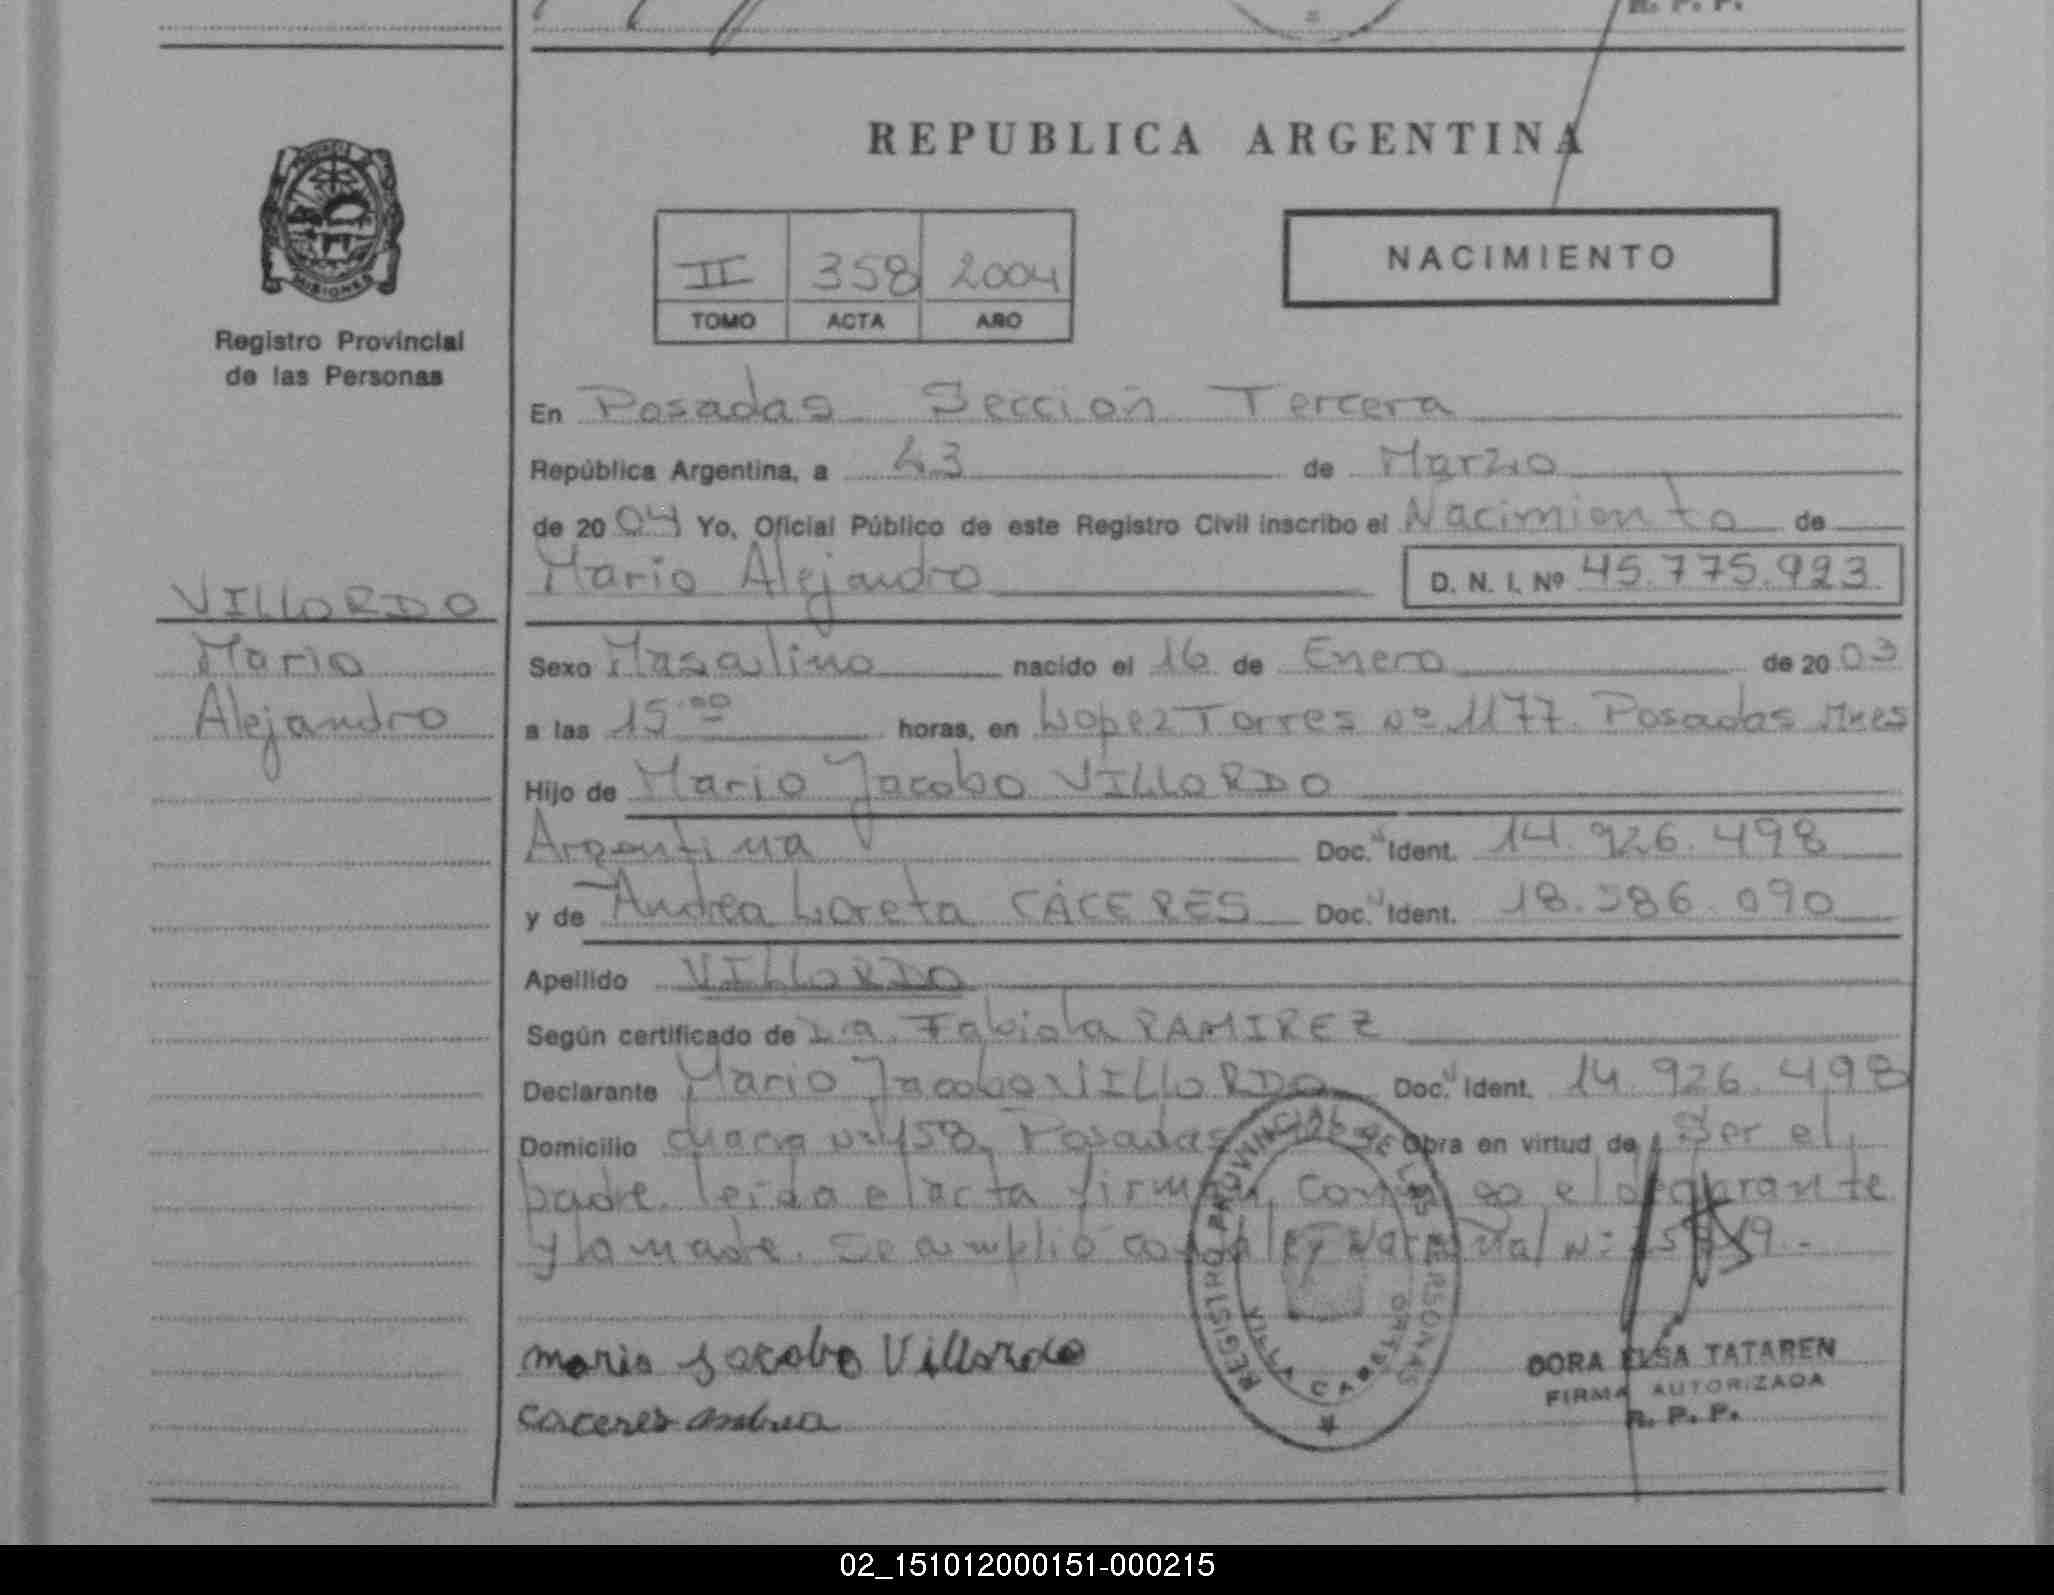 R. P. P.
REPUBLICA ARGENTINA
PROVINCIA MISIONES
Registro Provincial
de las Personas
II 358 2004
TOMO ACTA AÑO
NACIMIENTO
En Posadas Sección Tercera
República Argentina, a de Marzo
de 20 04 Yo, Oficial Público de este Registro Civil inscribo el Nacimiento de
Mario Alejandro D. N. I. Nº 45.775.923
VILLORDO
Mario
Alejandro
Sexo Masculino nacido el 16 de Enero de 20 03
a las 15:00 horas, en Lopez Torres Nº 1177. Posadas Mnes
Hijo de Mario Jacobo VILLORDO
Argentina Doc. Ident. 14.926.498
y de Andrea Loreta CÁCERES Doc. Ident. 18.386.090
Apellido VILLORDO
Según certificado de Dra. Fabiola RAMIREZ
Declarante Mario Jacobo VILLORDO Doc. Ident. 14.926.498
Domicilio chacra Nº 158 Posadas Obra en virtud de Ser el
padre. leída el acta firman conmigo el declarante
y la madre. Se cumplió con ley Nacional Nº
REGISTRO PROVINCIAL DE LAS PERSONAS
VILLA CABELLO
mario Jacobo Villordo
Caceres andrea
DORA ELSA TATAREN
FIRMA AUTORIZADA
R. P. P.
02_151012000151-000215